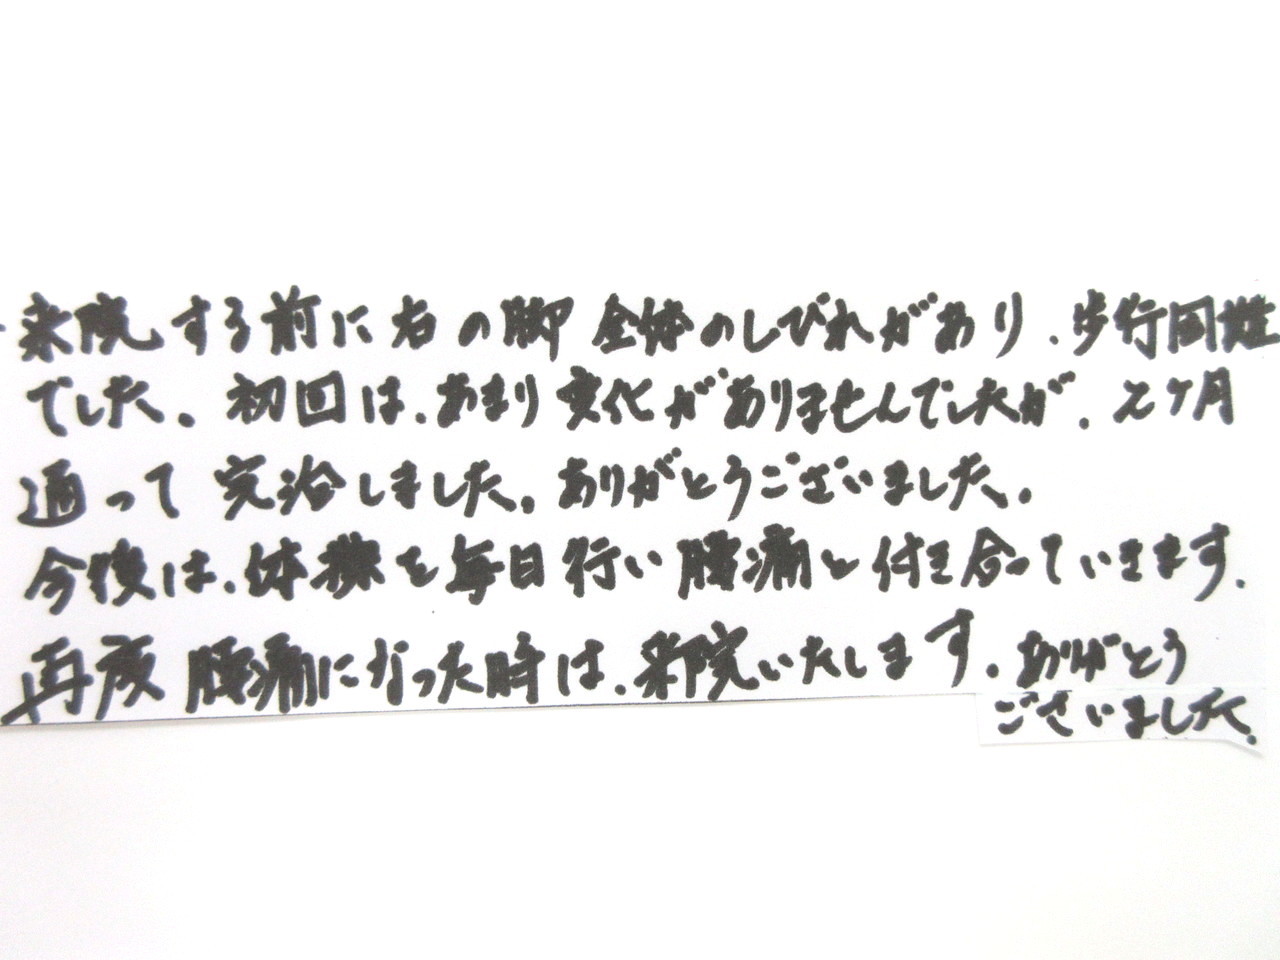 ・来院する前に右の脚全体のしびれがあり、歩行困難
でした。初回は、あまり変化がありませんでしたが、2ヶ月
通って完治しました。ありがとうございました。
今後は、体操を毎日行い腰痛と付き合っていきます。
再度腰痛になった時は、来院いたします。ありがとう
ございました。